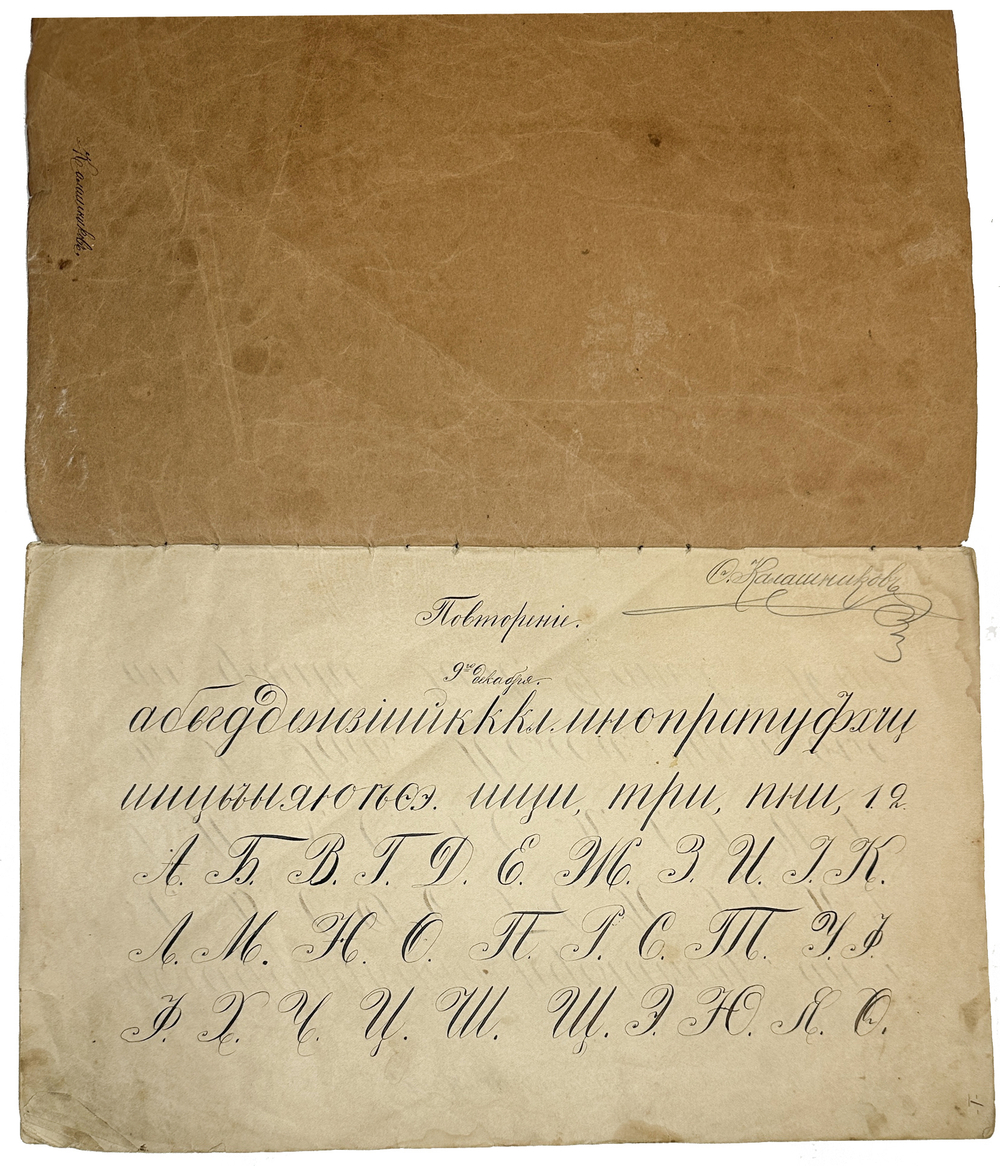 Калашниковъ.
Ѳ. Калашниковъ
Повтореніе.
9го декабря.
абвгдежзіийкккклмнопрстуфхчц
шщцъыяюѣѳэ. ищи, три, пни, 1. 2.
А. Б. В. Г. Д. Е. Ж. З. И. І. К.
Л. М. Н. О. П. Р. С. Т. У. Ф.
Ф. Х. Ч. Ц. Ш. Щ. Э. Ю. Я. Ѳ.
-1-